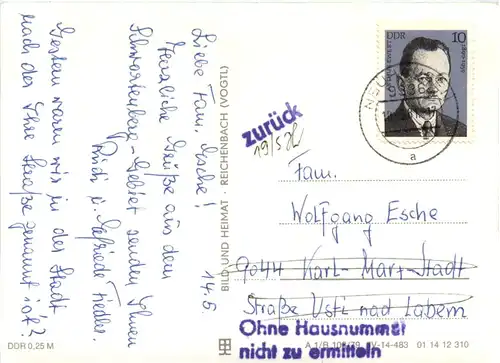 14.5.
Liebe Fam. Esche!
Herzliche Grüße aus dem
Schwartenberg-Gebiet senden Ihnen
u. Elfriede Fiedler.
Gestern waren wir in der Stadt
nach der Ihre Straße genannt ist?
BILD UND HEIMAT · REICHENBACH (VOGTL)
DDR 0,25 M
DDR
10
zurück
19/5
a
Fam.
Wolfgang Esche
9044 Karl-Marx-Stadt
Straße Usti nad Labem
Ohne Hausnummer
nicht zu ermitteln
IV-14-483 01 14 12 310